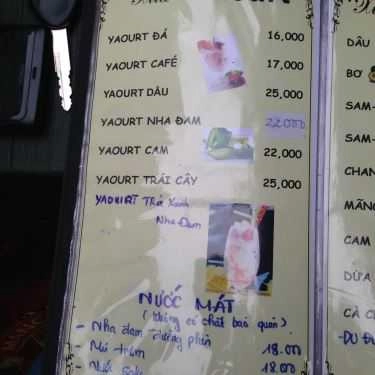 YAOURT ĐÁ 16,000
YAOURT CAFÉ 17,000
YAOURT DÂU 25,000
YAOURT NHA ĐAM 22000
YAOURT CAM 22,000
YAOURT TRÁI CÂY 25,000
YAOURT Trà Xanh
Nha Đam
NƯỚC MÁT
(không có chất bảo quản)
- Nha đam đường phèn 18.000
- Mủ trôm 18.000
DÂU
BƠ
SAM-
SAM-
CHAN
MÃNG
CAM
DỪA
CÀ C
-DU ĐU